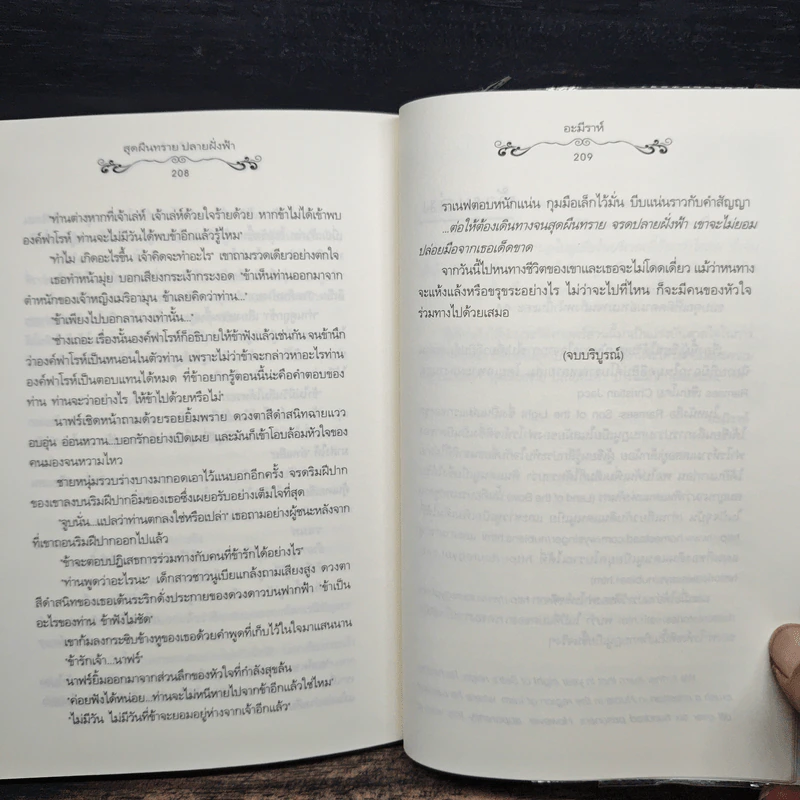 สุดผืนทราย ปลายฝั่งฟ้า
208
"ท่านต่างหากที่เจ้าเล่ห์ เจ้าเล่ห์ด้วยใจร้ายด้วย หากข้าไม่ได้เข้าพบ
องค์ฟาโรห์ ท่านจะไม่มีวันได้พบข้าอีกแล้วรู้ไหม"
"ทำไม เกิดอะไรขึ้น เจ้าคิดจะทำอะไร" เขาถามรวดเดียวอย่างตกใจ
เธอทำหน้ามุ่ย บอกเสียงกระเง้ากระงอด "ข้าเห็นท่านออกมาจาก
ตำหนักของเจ้าหญิงเมริอามุน ข้าเลยคิดว่าท่าน..."
"ข้าเพียงไปบอกลานางเท่านั้น..."
"ช่างเถอะ เรื่องนั้นองค์ฟาโรห์ก็อธิบายให้ข้าฟังแล้วเช่นกัน จนข้านึก
ว่าองค์ฟาโรห์เป็นหนอนในตัวท่าน เพราะไม่ว่าข้าจะกล่าวหาอะไรท่าน
องค์ฟาโรห์เป็นตอบแทนได้หมด ที่ข้าอยากรู้ตอนนี้น่ะคือคำตอบของ
ท่าน ท่านจะว่าอย่างไร ให้ข้าไปด้วยหรือไม่"
นาฟร์เชิดหน้าถามด้วยรอยยิ้มพราย ดวงตาสีดำสนิทฉายแวว
อบอุ่น อ่อนหวาน...บอกรักอย่างเปิดเผย และมันก็เข้าโอบล้อมหัวใจของ
คนมองจนหวามไหว
ชายหนุ่มรวบร่างบางมากอดเอาไว้แนบอกอีกครั้ง จรดริมฝีปาก
ของเขาลงบนริมฝีปากอิ่มของเธอซึ่งเผยอรับอย่างเต็มใจที่สุด
"จูบนั่น...แปลว่าท่านตกลงใช่หรือเปล่า" เธอถามอย่างผู้ชนะหลังจาก
ที่เขาถอนริมฝีปากออกไปแล้ว
"ข้าจะตอบปฏิเสธการร่วมทางกับคนที่ข้ารักได้อย่างไร"
"ท่านพูดว่าอะไรนะ" เด็กสาวชาวนูเบียแกล้งถามเสียงสูง ดวงตา
สีดำสนิทของเธอเต้นระริกดั่งประกายของดวงดาวบนฟากฟ้า "ข้าเป็น
อะไรของท่าน ข้าฟังไม่ชัด"
เขาก้มลงกระซิบข้างหูของเธอด้วยคำพูดที่เก็บไว้ในใจมาแสนนาน
"ข้ารักเจ้า...นาฟร์"
นาฟร์ยิ้มออกมาจากส่วนลึกของหัวใจที่กำลังสุขล้น
"ค่อยฟังได้หน่อย...ท่านจะไม่หนีหายไปจากข้าอีกแล้วใช่ไหม"
"ไม่มีวัน ไม่มีวันที่ข้าจะยอมอยู่ห่างจากเจ้าอีกแล้ว"
อะมีราห์
209
ราเนฟตอบหนักแน่น กุมมือเล็กไว้มั่น บีบแน่นราวกับคำสัญญา
...ต่อให้ต้องเดินทางจนสุดผืนทราย จรดปลายฝั่งฟ้า เขาจะไม่ยอม
ปล่อยมือจากเธอเด็ดขาด
จากวันนี้ไปหนทางชีวิตของเขาและเธอจะไม่โดดเดี่ยว แม้ว่าหนทาง
จะแห้งแล้งหรือขรุขระอย่างไร ไม่ว่าจะไปที่ไหน ก็จะมีคนของหัวใจ
ร่วมทางไปด้วยเสมอ
(จบบริบูรณ์)